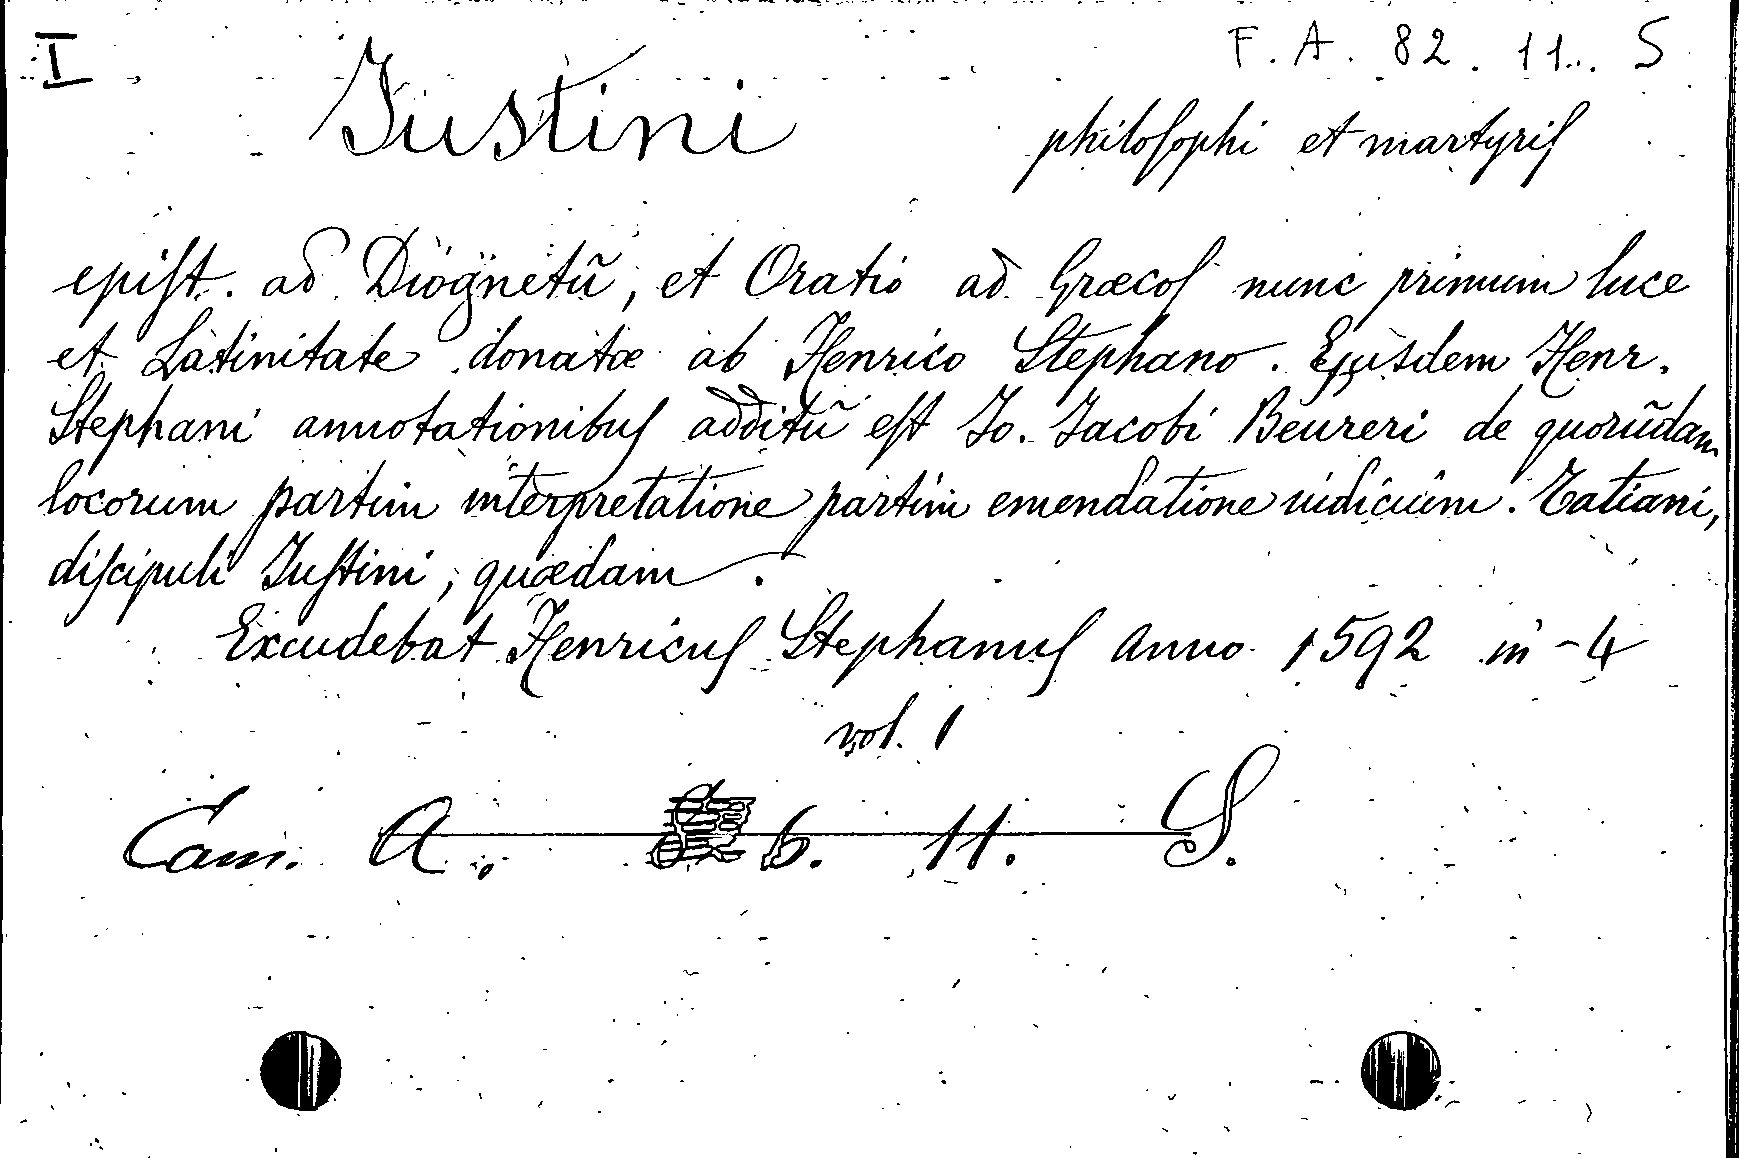 I
F. A. 82. 11. S
Justini philosophi et martyris
epist. ad Diognetũ, et Oratio ad Græcos nunc primum luce
et Latinitate donatæ ab Henrico Stephano. Ejusdem Henr.
Stephani annotationibus additũ est Jo. Jacobi Beureri de quorũdam
locorum partim interpretatione partim emendatione iudicium. Tatiani,
discipuli Justini, quædam.
Excudebat Henricus Stephanus anno 1592 in-4
vol. 1
Cam. A. 6. 11. S.